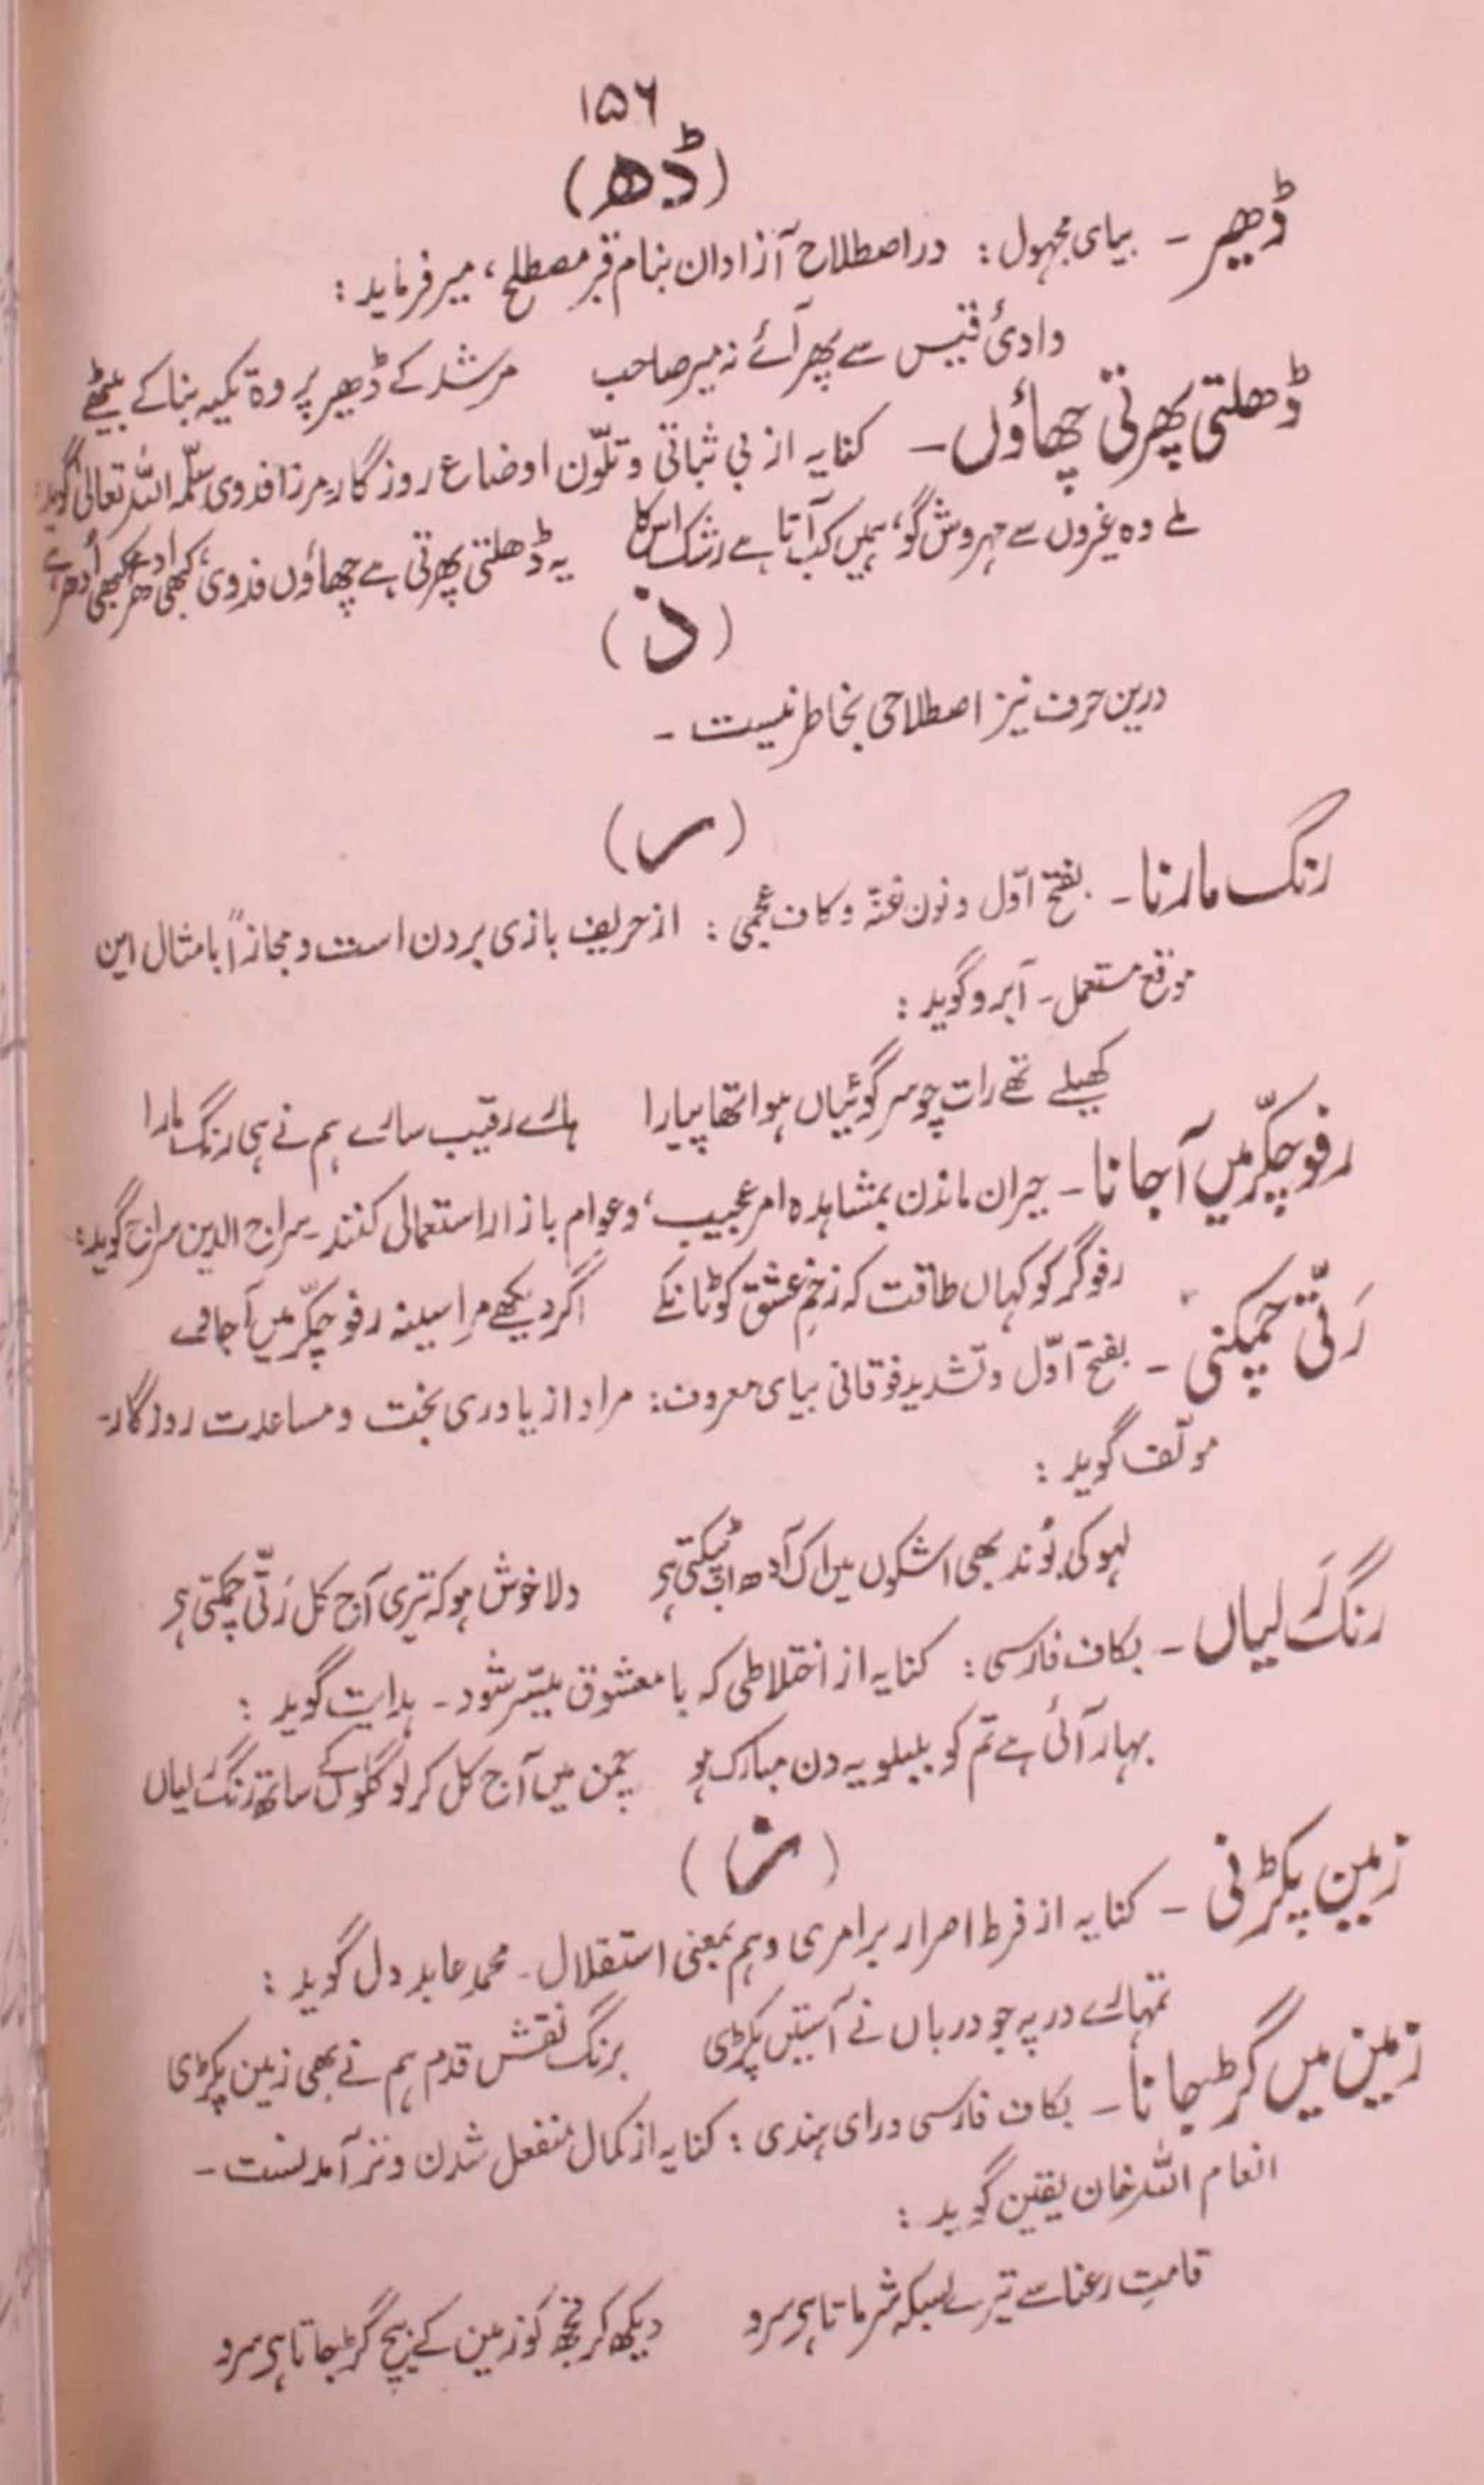 ۱۵۶
(ڈھ)
ڈھیر ـ بیای مجہول : در اصطلاح آزادان بنام قبر مصطلح ، میر فرماید :
وادیٔ قیس سے پھر آئے نہ میر صاحب مرشد کے ڈھیر پر وہ تکیہ بنا کے بیٹھے
ڈھلتی پھرتی چھاؤں ـ کنایہ از بی ثباتی و تلّون اوضاع روزگار مرزا فدوی سلّمہ اللہ تعالیٰ گوید :
ملے وہ غیروں سے مہروش گو ، ہمیں کب آتا ہے رشک اس کا یہ ڈھلتی پھرتی ہے چھاؤں فدوی ، کبھی ادھر کبھی اُدھر ہے
(ذ)
درین حرف نیز اصطلاحی بخاطر نیست ـ
(ر)
رنگ مارنا ـ بفتح اوّل و نون غنّہ و کاف عجمی : از حریف بازی بردن است و مجازاً بامثال این
موقع مستعمل ـ آبرو گوید :
کھیلے تھے رات چوسر گوئیاں ہوا تھا پیارا ہارے رقیب سارے ہم نے ہی رنگ مارا
رفو چکّر میں آجانا ـ حیران ماندن بمشاہدہ امر عجیب ، و عوام بازار استعمال کنند ـ سراج الدین سراج گوید :
رفوگر کو کہاں طاقت کہ زخمِ عشق کو ٹانکے اگر دیکھے مرا سینہ رفو چکّر میں آجاوے
رَتّی چمکنی ـ بفتح اوّل و تشدید فوقانی بیای معروف : مراد از یاوری بخت و مساعدت روزگار ـ
مولّف گوید :
لہو کی بُوند بھی اشکوں میں اک آدھ اب ٹپکتی ہی دلا خوش ہو کہ تیری آج کل رَتّی چمکتی ہی
رنگ رَلیاں ـ بکاف فارسی : کنایہ از اختلاطی کہ با معشوق میسّر شود ـ ہدایت گوید :
بہار آئی ہے تم کو بلبلو یہ دن مبارک ہو چمن میں آج کل کر لو گلوں کے ساتھ رنگ رلیاں
(ز)
زمین پکڑنی ـ کنایہ از فرط اصرار بر امری و ہم بمعنی استقلال ـ محمد عابد دل گوید :
تمہارے در پہ جو درباں نے آستیں پکڑی برنگ نقش قدم ہم نے بھی زمین پکڑی
زمین میں گڑ جانا ـ بکاف فارسی و رای ہندی : کنایہ از کمال منفعل شدن ونز آمدنست ـ
انعام اللہ خان یقین گوید :
قامتِ رعنا سے تیرے بسکہ شرماتا ہی سرو دیکھ کر تجھ کو زمین کے بیچ گڑ جاتا ہی سرو